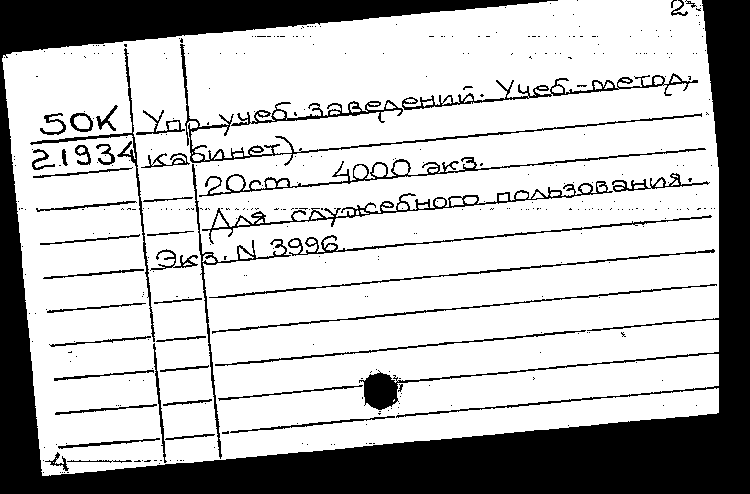 2
50К Упр. учеб. заведений. Учеб.-метод.
21934 кабинет).
20см. 4000 экз.
Для служебного пользования.
Экз. N 3996.
4